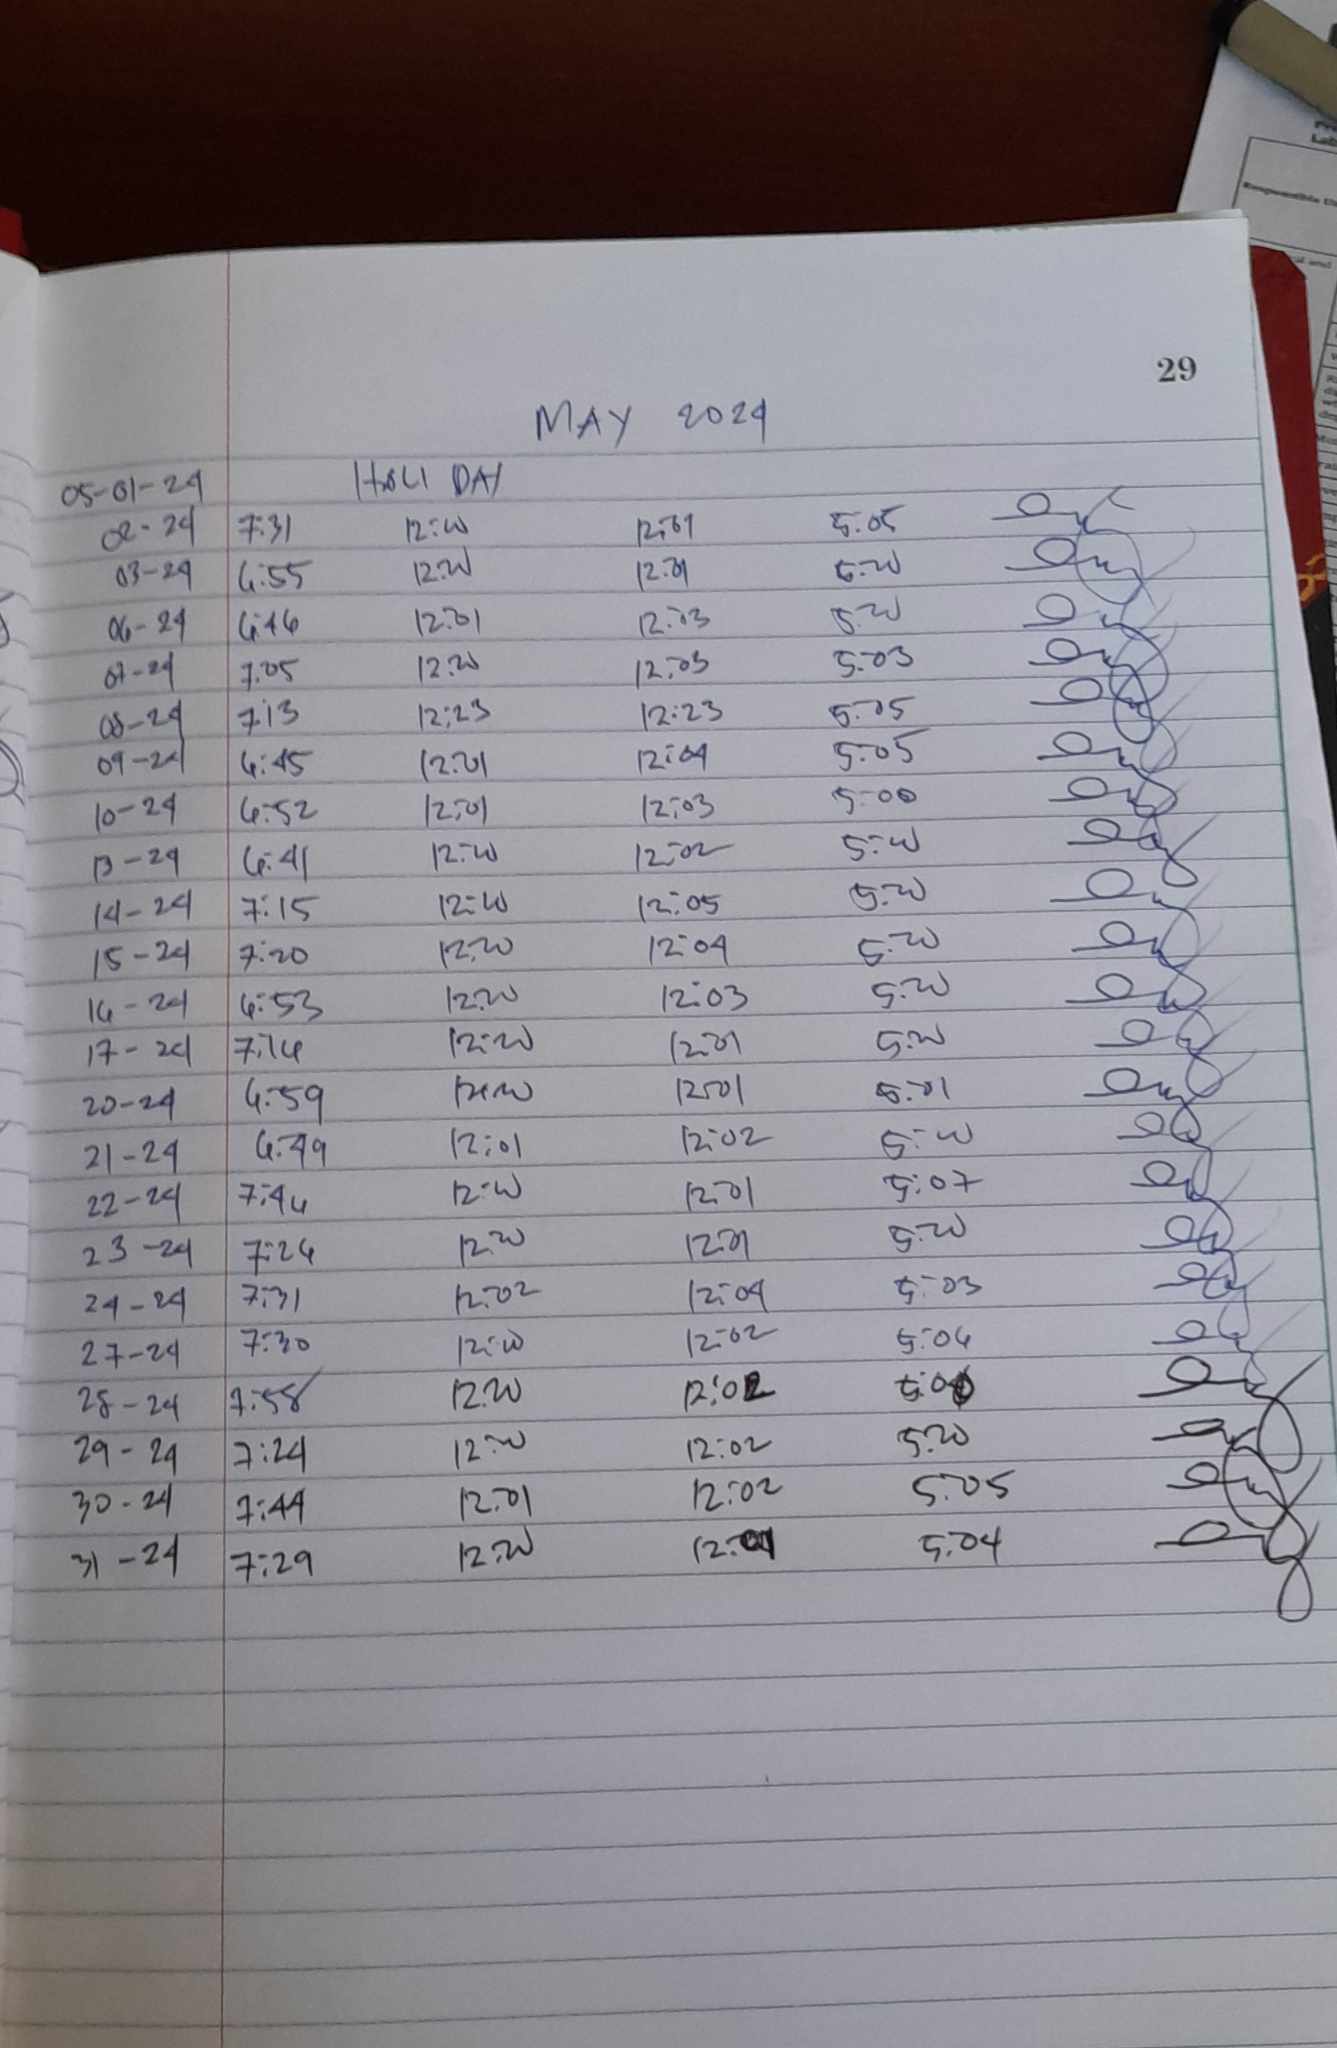 29
MAY 2024
05-01-24 HOLI DAY
02-24 7:31 12:00 12:01 5:05
03-24 6:55 12:00 12:01 5:00
06-24 6:46 12:01 12:03 5:00
07-24 7:05 12:00 12:03 5:03
08-24 7:13 12:23 12:23 5:05
09-24 6:45 12:01 12:04 5:05
10-24 6:52 12:01 12:03 5:00
13-24 6:41 12:00 12:02 5:00
14-24 7:15 12:00 12:05 5:00
15-24 7:20 12:00 12:04 5:00
16-24 6:53 12:00 12:03 5:00
17-24 7:16 12:00 12:01 5:00
20-24 6:59 12:00 12:01 5:01
21-24 6:49 12:01 12:02 5:00
22-24 7:46 12:00 12:01 5:07
23-24 7:26 12:00 12:01 5:00
24-24 7:31 12:02 12:04 5:03
27-24 7:30 12:00 12:02 5:06
28-24 7:58 12:00 12:02
29-24 7:24 12:00 12:02 5:00
30-24 7:44 12:01 12:02 5:05
31-24 7:29 12:00 12:01 5:04
Responsible